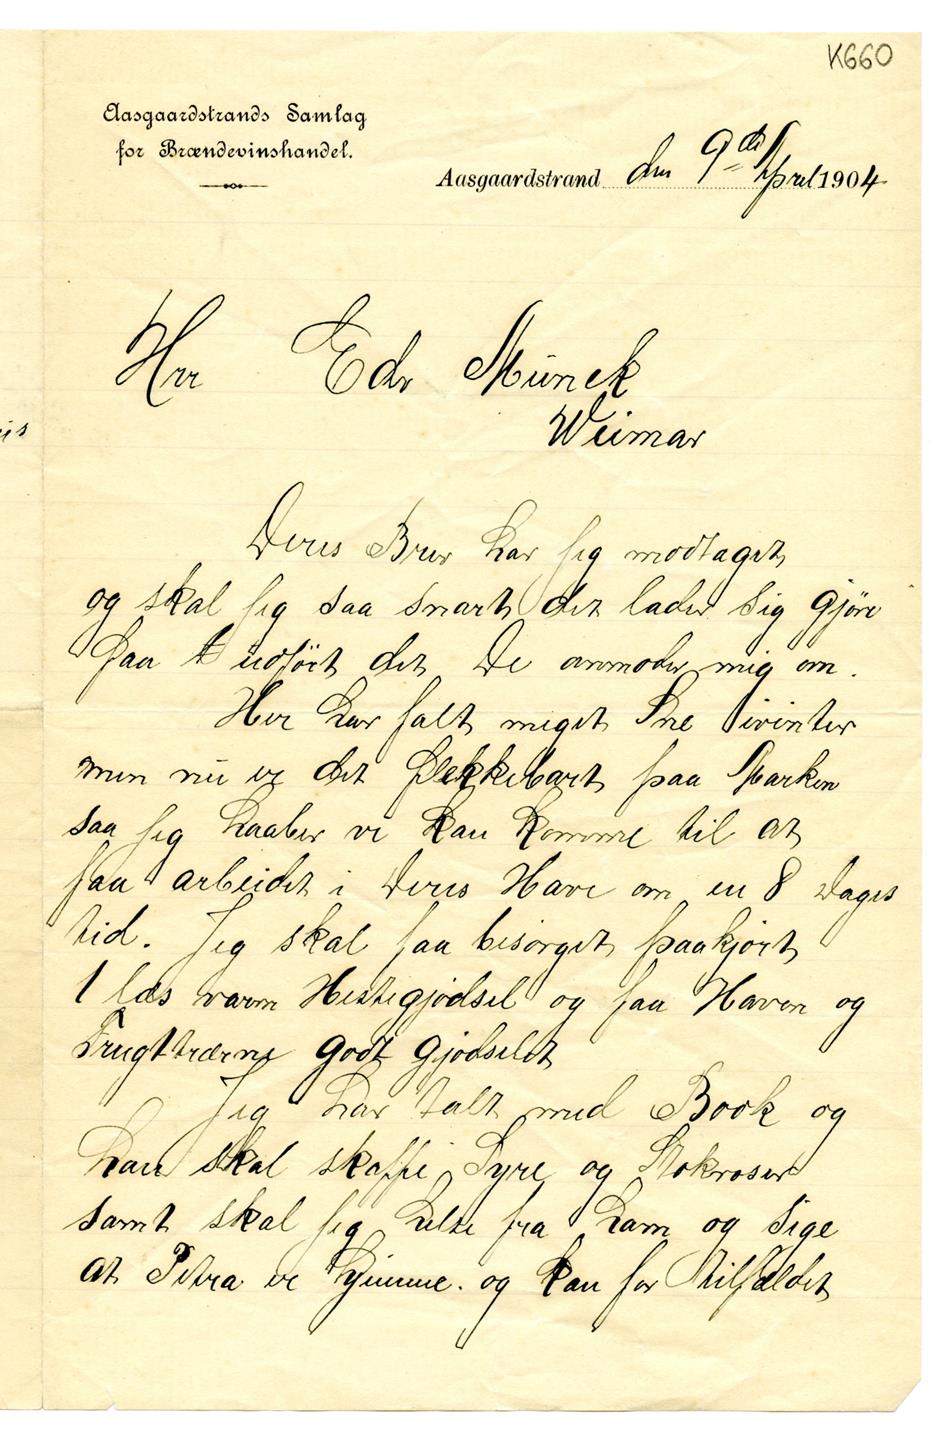 K660
Aasgaardstrands Samlag
for Brændevinshandel.
Aasgaardstrand den 9de April 1904
Hrr Edv Munck
Weimar
is
Deres Brev har jeg modtaget
og skal jeg saa snart det lader sig gjöre
faa udfört det De anmoder mig om.
Her har falt meget Sne ivinter
men nu er det flekkebart paa Marken
saa jeg haaber vi kan komme til at
faa arbeidet i Deres Have om en 8 Dages
tid. Jeg skal faa besörget paakjört
1 læs varm Hestegjödsel og faa Haven og
Frugttrærne godt gjödslet
Jeg har talt med Book og
han skal skaffe Syre og Stokroser
samt skal jeg hilse fra ham og sige
at Petra er hjemme. og kan for tilfældet